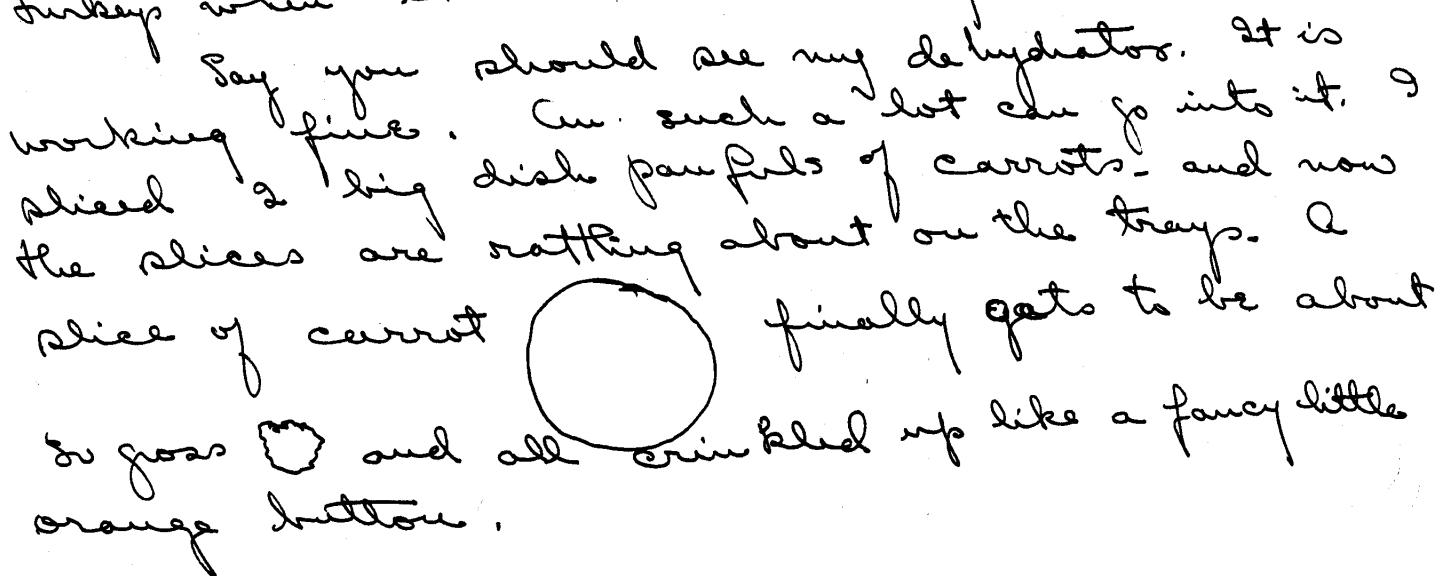 turkeys when
Say you should see my dehydrator. It is
working fine. such a lot can go into it. I
sliced 2 big dish pan fuls of carrots - and now
the slices are rattling about on the trays. A
slice of carrot finally gets to be about
so gross and all crinkled up like a fancy little
orange button.